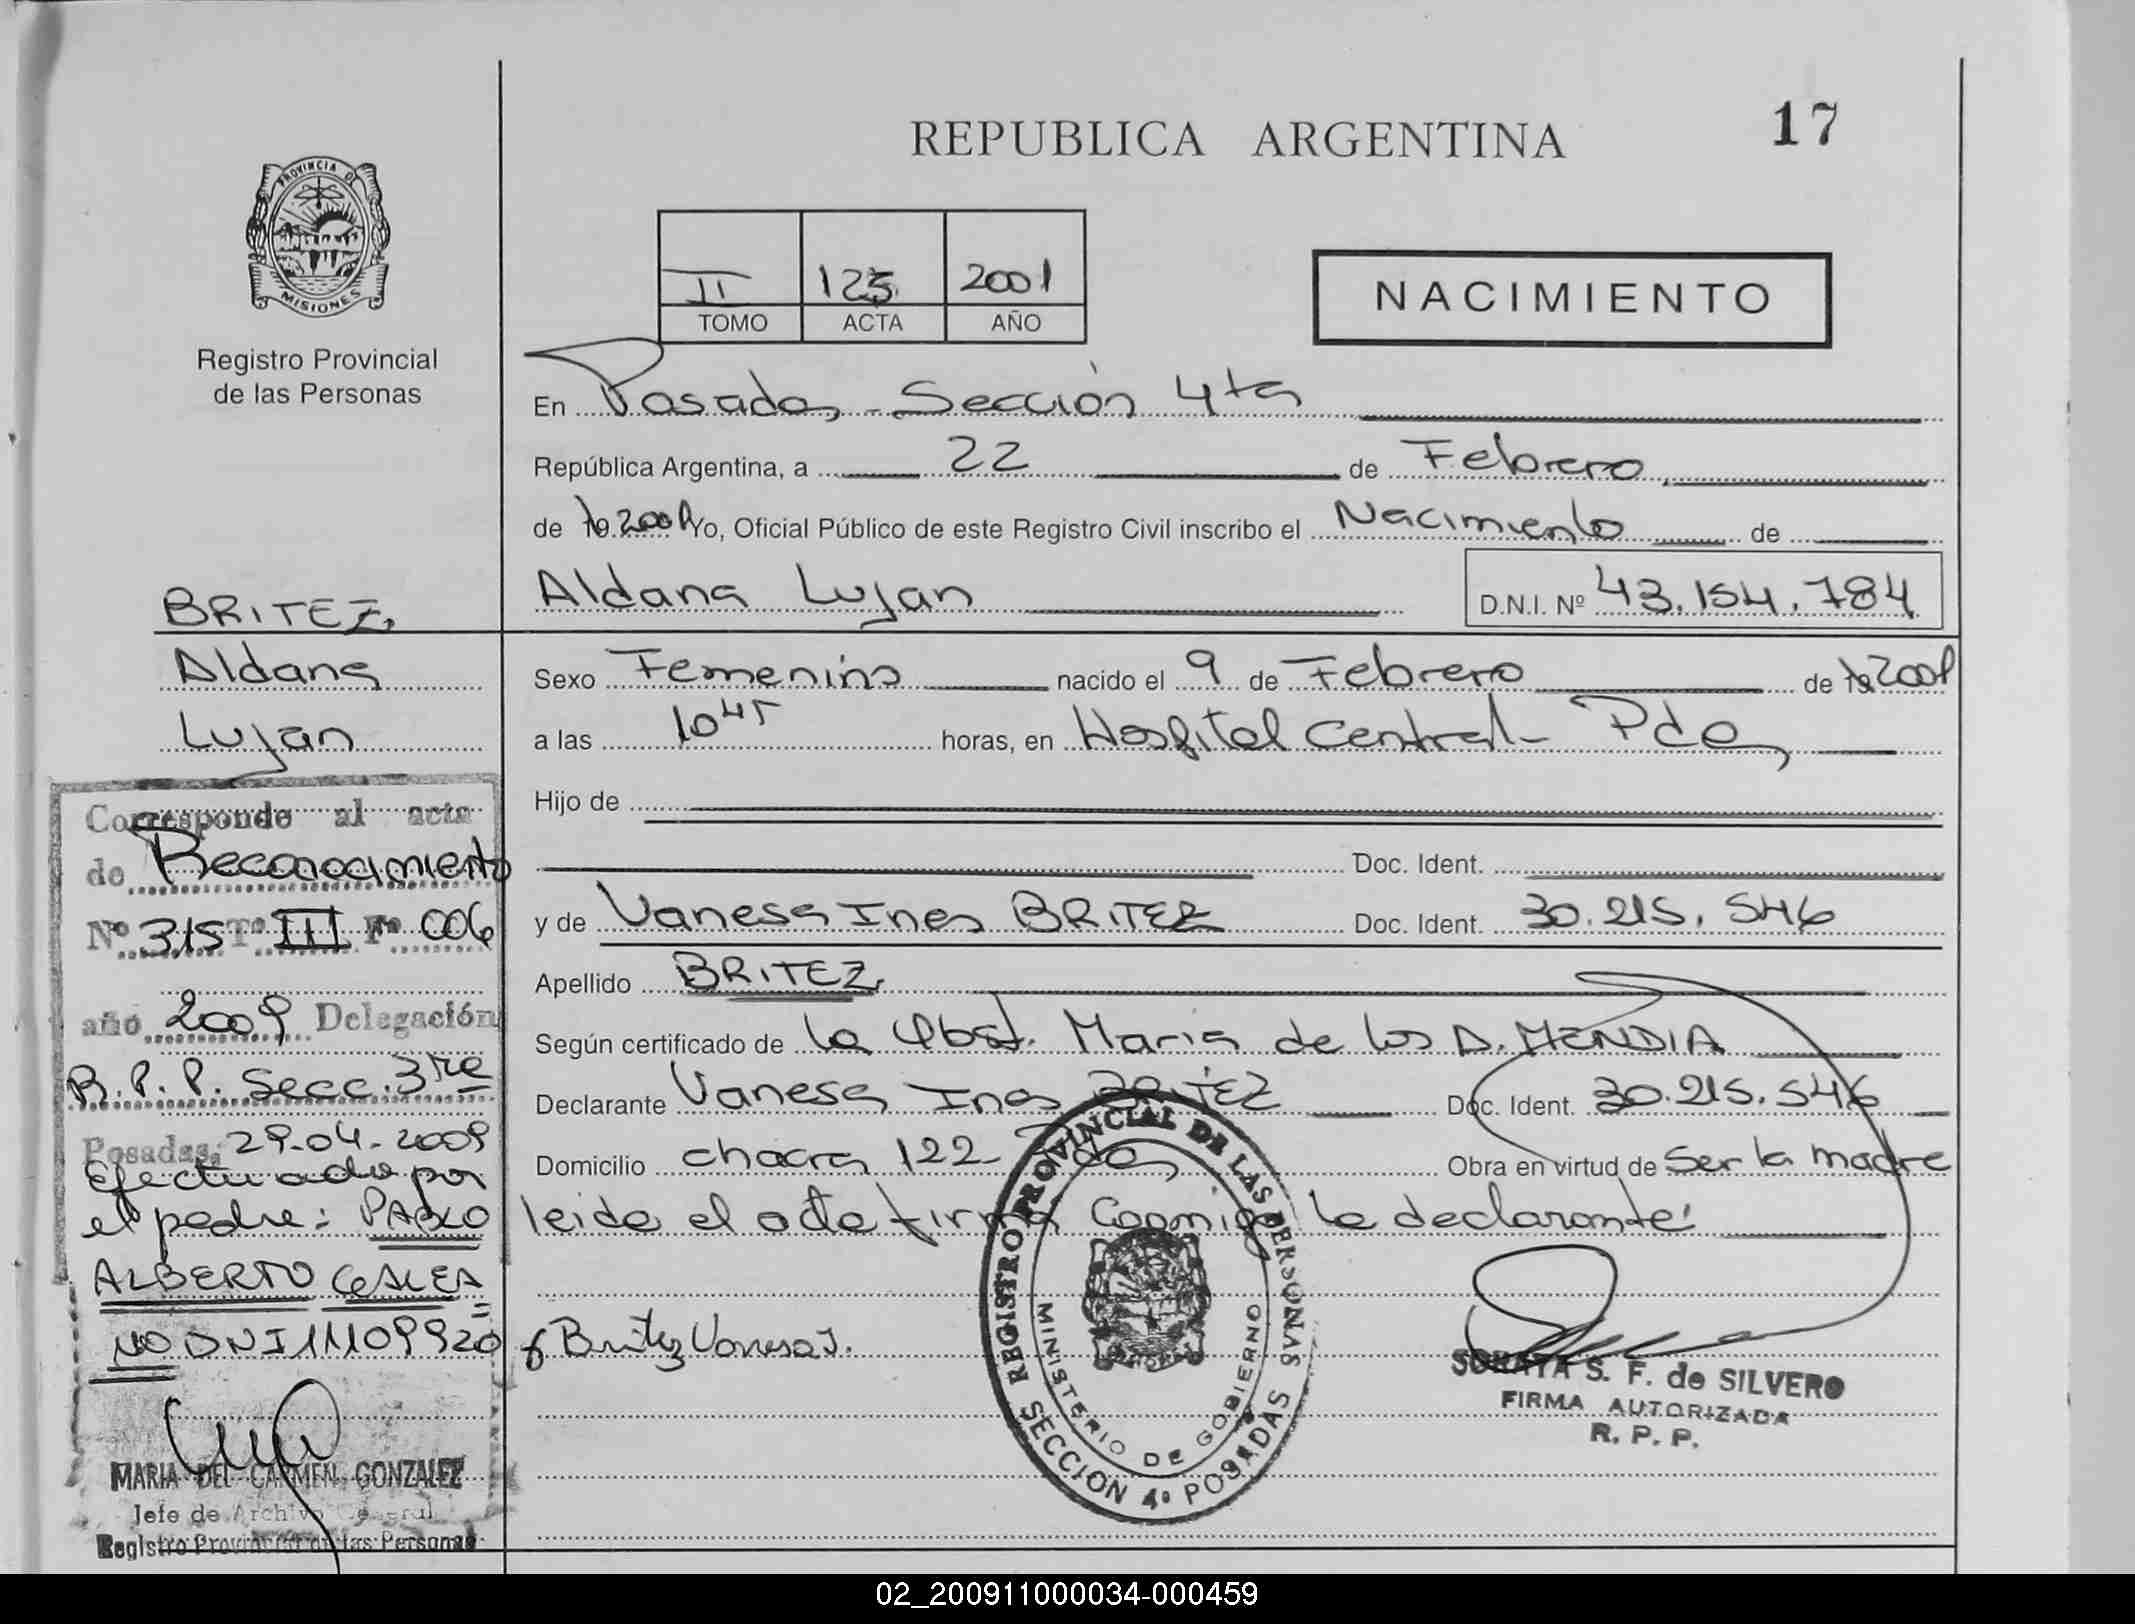 REPUBLICA ARGENTINA
17
PROVINCIA DE
MISIONES
Registro Provincial
de las Personas
II 125 2001
TOMO ACTA AÑO
NACIMIENTO
En Posadas - Sección 4ta
República Argentina, a 22 de Febrero
de 19 2001 Yo, Oficial Público de este Registro Civil inscribo el Nacimiento de
Aldana Lujan D.N.I. Nº 43.154.784
Sexo Femenino nacido el 9 de Febrero de 19 2001
a las 10 45 horas, en Hospital Central - Pdas
Hijo de
Doc. Ident.
y de Vanesa Ines BRITEZ Doc. Ident. 30.215.546
Apellido BRITEZ
Según certificado de la Obst. Maria de los A. MENDIA
Declarante Vanesa Ines BRITEZ Doc. Ident. 30.215.546
Domicilio chacra 122 Pdas Obra en virtud de Ser la madre
leida el acta firma Conmigo la declarante
Britez Vanesa I.
REGISTRO PROVINCIAL DE LAS PERSONAS
MINISTERIO DE GOBIERNO
SECCION 4º POSADAS
SORAYA S. F. de SILVERO
FIRMA AUTORIZADA
R. P. P.
BRITEZ,
Aldana
Lujan
Corresponde al acta
de Reconocimiento
Nº 315 Tº III Fº 006
año 2009 Delegación
R.P.P. Secc. 3ra
Posadas, 29-04-2009
Efectuado por
el padre: PABLO
ALBERTO
DNI 11109920
MARIA DEL CARMEN GONZALEZ
Jefe de Archivo General
Registro Provincial de las Personas
02_200911000034-000459